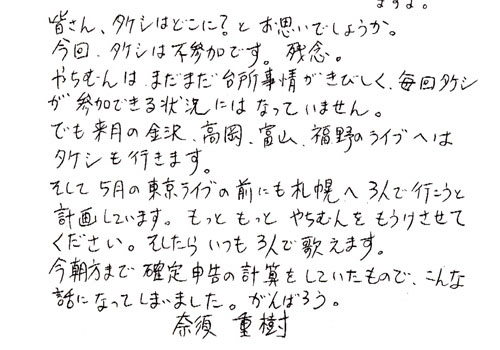 ますよ。
皆さん、タケシはどこに？と お思いでしょうか。
今回、タケシは不参加です。残念。
やちむんは まだまだ台所事情がきびしく、毎回タケシ
が参加できる状況にはなっていません。
でも来月の金沢、高岡、富山、福野のライブへは
タケシも行きます。
そして5月の東京ライブの前にも札幌へ3人で行こうと
計画しています。もっともっと やちむんをもうけさせて
ください。そしたらいつも3人で歌えます。
今朝方まで確定申告の計算をしていたもので、こんな
話になってしまいました。がんばろう。
奈須 重樹